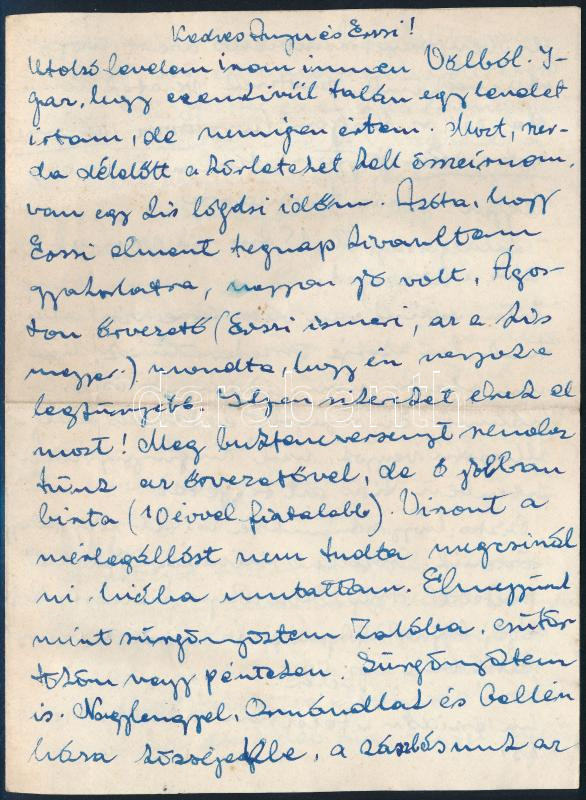 Kedves Anyu és Erssi!
Utolsó levelem írom innen Válból. I-
gaz, hogy ezenkívül talán egy levelet
írtam, de nemigen értem. Most, szer-
da délelőtt a körletet kell összeírnom,
van egy kis lógási időm. Azóta, hogy
Erssi elment tegnap kivonultam
gyakorlatra, nagyon jó volt. Ágos-
ton őrvezető (Erssi ismeri, az a kis
magyar.) mondta, hogy én vagyok a
legfürgébb. Ilyen sikereket érek el
most! Meg bukfencversenyt rendez
tünk az őrvezetővel, de ő jobban
bírta (10 évvel fiatalabb). Viszont a
mérlegállást nem tudta megcsinál
ni, hiába mutattam. Elmegyünk
mint sürgönyöztem Zalába, csütör
tökön vagy pénteken. Sürgönyöztem
is. Nagylengyel, Ormándlak és
háza községekbe, a zászlósunk az
darabanth